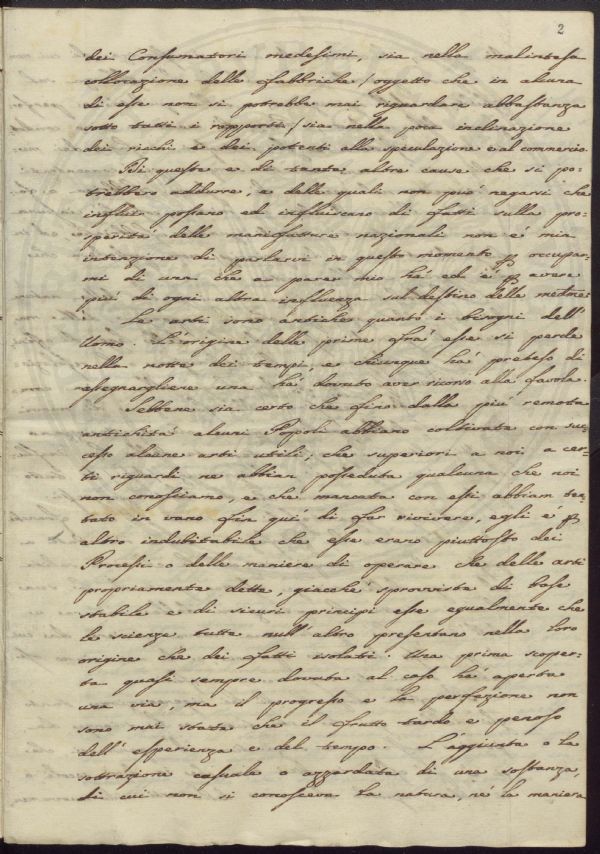 2
dei Consumatori medesimi, sia nella malintesa
collocazione delle fabbriche / oggetto che in alcuna
di esse non si potrebbe mai riguardare abbastanza
sotto tutti i rapporti / sia nella poca inclinazione
dei ricchi e dei potenti alla speculazione e al commercio.
Di queste e di tante altre cause che si po-
trebbero addurre, e delle quali non può negarsi che
influir possano ed influiscano di fatti sulla pro-
sperità delle manifatture nazionali non é mia
intenzione di parlarvi in questo momento occupar-
mi di una che a parer mio há ed é avere
più di ogni altra influenza sul destino delle medme
Le arti sono antiche quanto i bisogni dell'
Uomo. L'origine delle prime frá esse si perde
nella notte dei tempi, e chiunque há preteso di
assegnargliene una há dovuto aver ricorso alla favola.
Sebbene sia certo che fin dalla più remota
antichitá alcuni Popoli abbiano coltivata con suc-
cesso alcune arti utili, che superiori a noi a cer-
ti riguardi ne abbian posseduta qualcuna che noi
non conosciamo, e che mancata con essi abbiam ten-
tato in vano fin qui di far rivivere, egli e
altro indubitabile che esse erano piuttosto dei
Processi o delle maniere di operare che delle arti
propriamente dette, giacché sprovviste di base
stabile e di sicuri principj esse egualmente che
le scienze tutte null'altro presentano nella loro
origine che dei fatti isolati. Una prima scoper-
ta quasi sempre dovuta al caso há aperta
una via, ma il progresso e la perfezione non
sono mai stata che il frutto tardo e penoso
dell'esperienza e del tempo. L'aggiunta o la
sottrazione casuale o azzardata di una sostanza,
di cui non si conosceva la natura, né la maniera